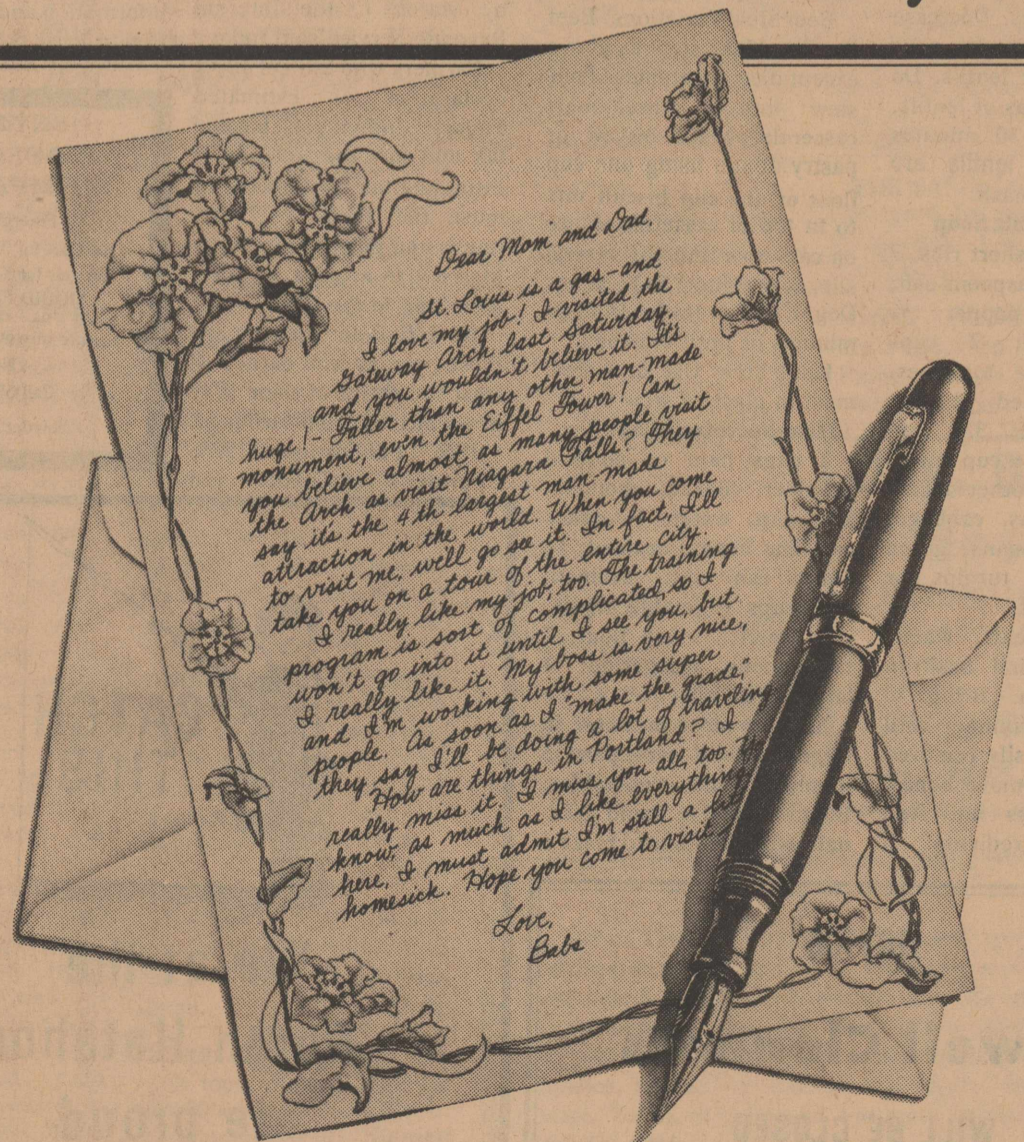 Dear Mom and Dad,
St. Louis is a gas—and
I love my job! I visited the
Gateway Arch last Saturday,
and you wouldn't believe it. It's
huge!—Taller than any other man-made
monument, even the Eiffel Tower! Can
you believe almost as many people visit
the Arch as visit Niagara Falls? They
say it's the 4th largest man-made
attraction in the world. When you come
to visit me, we'll go see it. In fact, I'll
take you on a tour of the entire city.
I really like my job, too. The training
program is sort of complicated, so I
won't go into it until I see you, but
I really like it. My boss is very nice,
and I'm working with some super
people. As soon as I "make the grade,"
they say I'll be doing a lot of traveling
How are things in Portland? I
really miss it. I miss you all, too.
know, as much as I like everything
here, I must admit I'm still a
homesick. Hope you come to visit
Love,
Babs